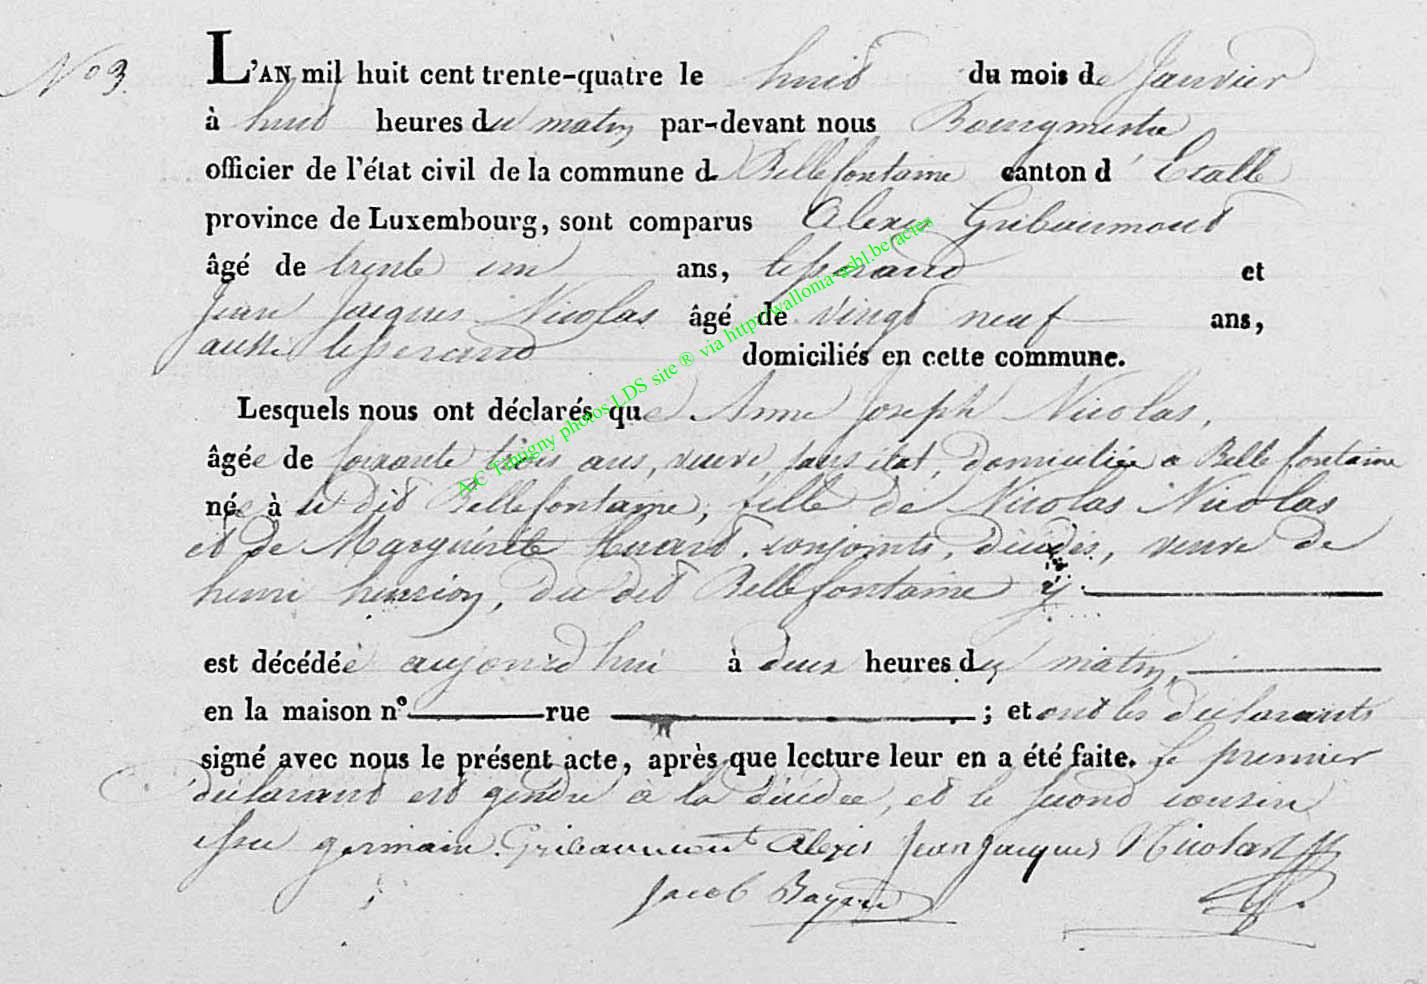 No 3.
L'AN mil huit cent trente-quatre le huit du mois de Janvier
à huit heures du matin par-devant nous Bourgmestre
officier de l'état civil de la commune de Bellefontaine canton d'Etalle
province de Luxembourg, sont comparus Alexis Gribaumont
âgé de trente un ans, tisserand et
Jean Jacques Nicolas âgé de vingt neuf ans,
aussi tisserand domiciliés en cette commune.
Lesquels nous ont déclarés que Anne Joseph Nicolas,
âgée de soixante trois ans, veuve, sans état domiciliée a Bellefontaine
née à u dit Bellefontaine, fille de Nicolas Nicolas
et de Marguérite Huard, conjoints, décédés, veuve de
henri hension, du dit Bellefontaine y
est décédée aujourd'hui à deux heures du matin,
en la maison n° rue ; et ont les déclarants
signé avec nous le présent acte, après que lecture leur en a été faite. Le premier
déclarant est gendre à la décédée, et le second cousin
issu germain. Gribaumont Alexis Jean Jacques Nicolas
Jacob Bayard
A.C Tintigny photos LDS site ® via http://wallonia-asbl.be/actes